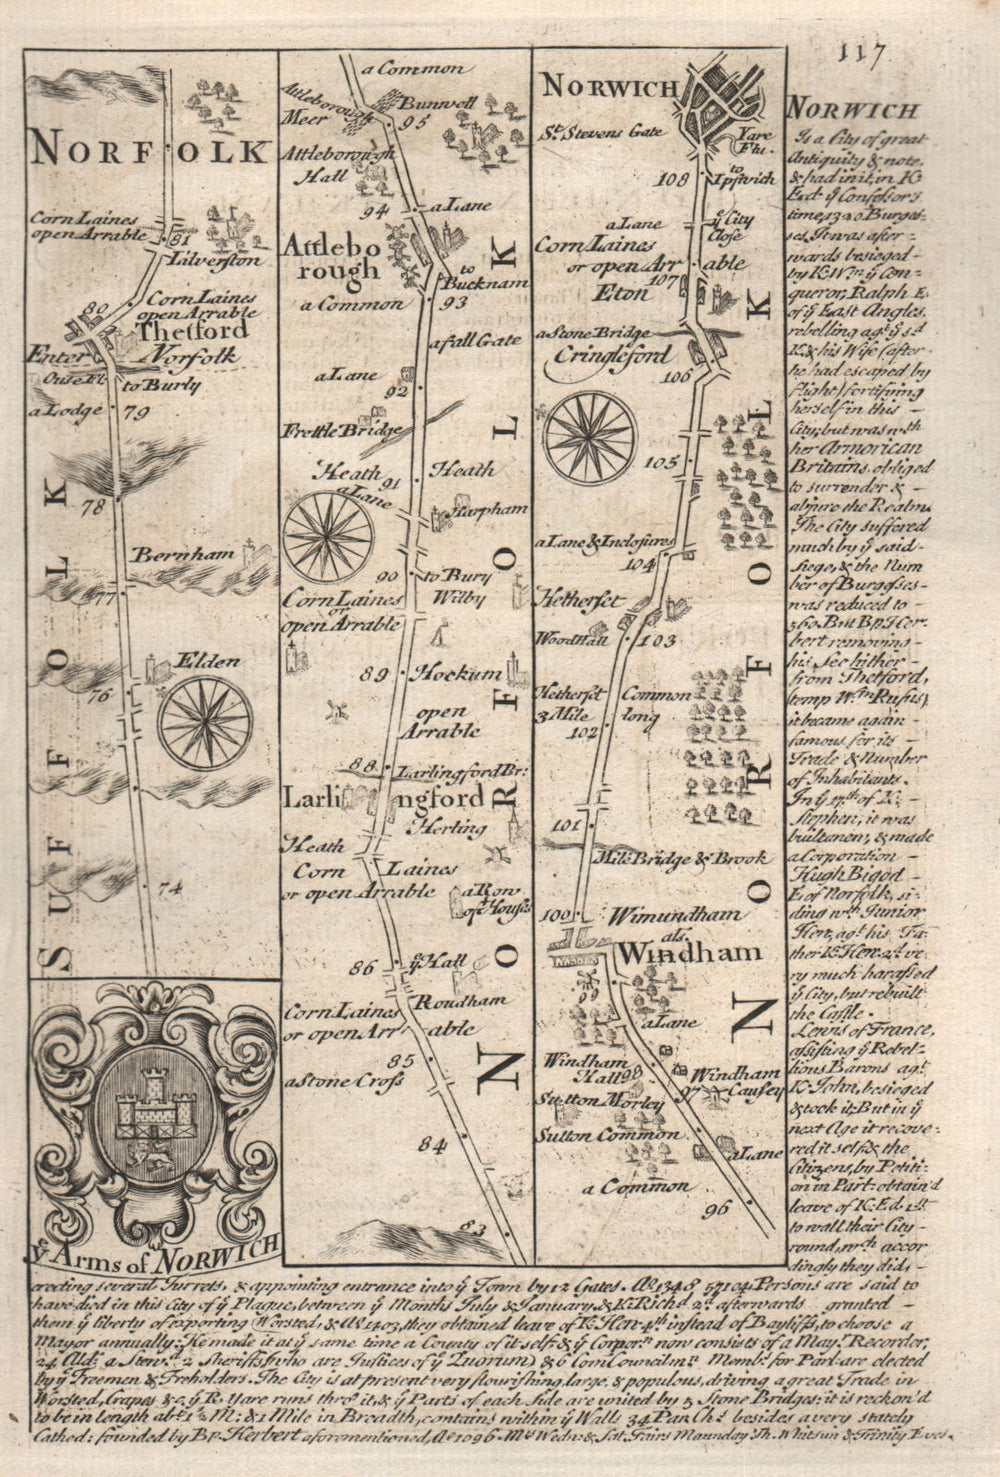 117
NORFOLK
Corn Laines
open Arrable
81
Lilverston
80
Corn Laines
open Arrable
Thetford
Enter Norfolk
Ouse Fl.
to Burly
a Lodge
79
78
Bernham
77
Elden
76
74
SUFFOLK
ye Arms of NORWICH
a Common
Attleborough
Meer
Bunwell
95
Attleborough
Hall
94
a Lane
Attlebo
rough
to
Bucknam
a Common
93
a fall Gate
a Lane
92
Frettle Bridge
Heath
91
Heath
a Lane
Harpham
90
to Bury
Wilby
Corn Laines
or
open Arrable
89
Hockum
open
Arrable
88
Larlingford Br:
Larli ngford
Herling
Heath
Corn Laines
or open Arrable
a Row
of Houses
86
ye Hall
Roudham
Corn Laines
or open Arr able
85
a Stone Cross
84
83
NORFOLK
NORWICH
St. Stevens Gate
Yare
Flu.
108
to
Ipswich
a Lane
ye City
Close
Corn Laines
or open Arr able
107
Eton
a Stone Bridge
Cringleford
106
105
a Lane & Inclosures
104
Hetherset
Woodhall
103
Hetherset Common
3 Mile long
102
101
Mile Bridge & Brook
100
Wimundham
als.
Windham
99
a Lane
Windham
Hall
98
Windham
Causey
97
Sutton Morley
Sutton Common
a Lane
a Common
96
NORFOLK
NORWICH
Is a City of great
Antiquity & note,
& had in it, in K.
Ed. ye Confessor's
time, 1320 Burges-
ses. It was after-
wards besieged
by K. Wm. ye Con-
queror, Ralph E.
of ye East Angles,
rebelling agt. ye sd.
K. & his Wife (after
he had escaped by
flight) fortifying
herself in this
City, but was wth.
her Armorican
Britains, obliged
to surrender &
abjure the Realm.
The City suffered
much by ye said
Siege, & the Num
ber of Burgesses
was reduced to
560. But Bp. Her
bert removing
his See hither
from Thetford,
(temp. Wm. Rufus)
it became again
famous for its
Trade & Number
of Inhabitants.
In ye 17th. of K.
Stephen, it was
built anew, & made
a Corporation
Hugh Bigod
E. of Norfolk, si-
ding wth. Junior
Hen. agt. his Fa-
ther K. Hen. 2d. ve-
ry much harassed
ye City, but rebuilt
the Castle.
Lewis of France,
assisting ye Rebel-
lious Barons agt.
K. John, besieged
& took it; But in ye
next Age it recove-
red it self, & the
Citizens, by Petiti-
on in Parlt. obtain'd
leave of K. Ed. 1st.
to wall their City
round, wch. accor
dingly they did,
erecting several Turrets, & appointing entrance into ye Town by 12 Gates. Ao. 1348, 57104 Persons are said to
have died in this City of ye Plague, between ye Months July & January, & K. Richd. 2d. afterwards granted
them ye liberty of exporting Worsted, & Ao. 1403, they obtained leave of K. Hen. 4th. instead of Bayliffs, to choose a
Mayor annually: He made it at ye same time a County of it self: & ye Corporn. now consists of a Mayr. Recorder,
24 Ald: a Stewd. 2 Sheriffs (who are Justices of ye Quorum) & 60 Com Councilmn. Membs. for Parlt. are elected
by ye Freemen & Freholders. The City is at present very flourishing, large, & populous, driving a great Trade in
Worsted, Crapes &c. ye R. Yare runs thro' it, & ye Parts of each Side are united by 5 Stone Bridges: it is reckon'd
to be in length abt. 1½ M: & 1 Mile in Breadth, contains within ye Walls 34 Par. Chs. besides a very stately
Cathed: founded by Bp. Herbert aforementioned, Ao. 1096. Mts. Wedn. & Sat. Fairs Maunday Th. Whitsun & Trinity Eves.